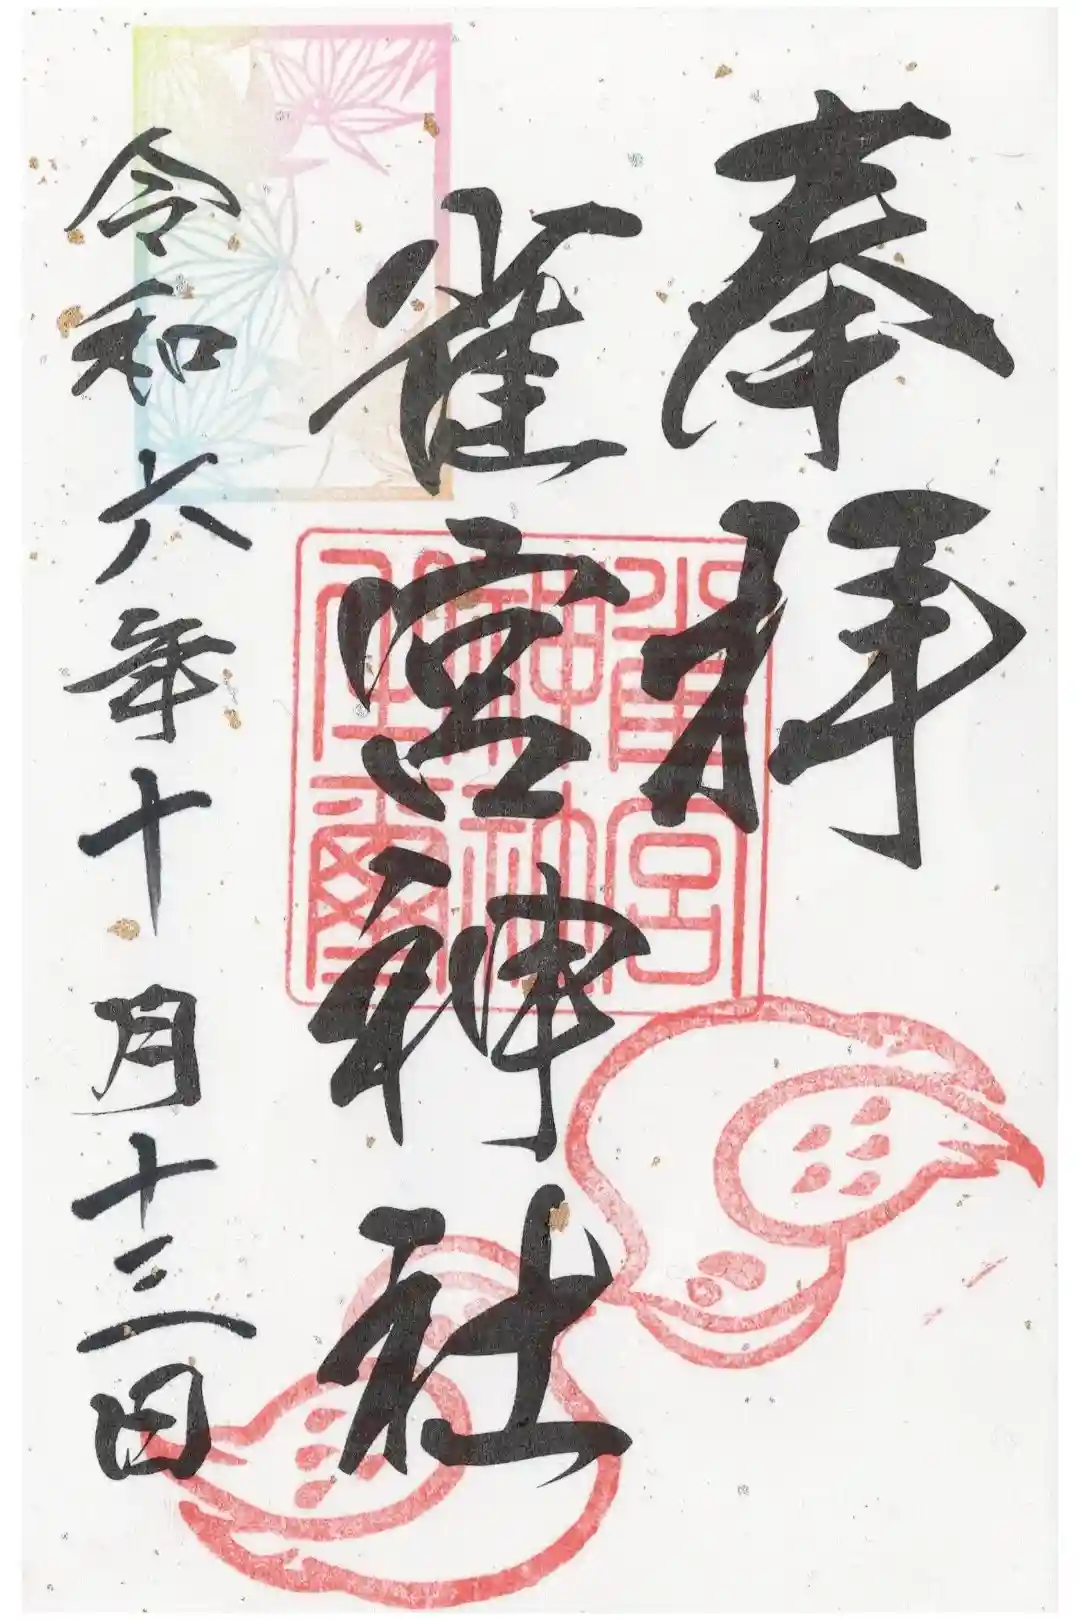 奉拝
雀宮神社
雀宮神社璽
令和六年十月十三日